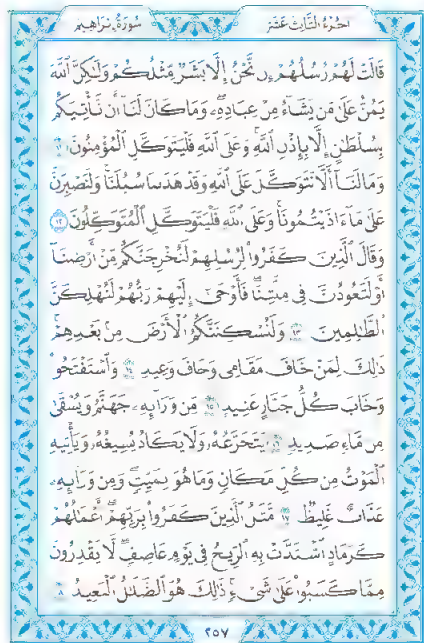 الجزء الثالث عشر
سورة إبراهيم
قَالَتْ لَهُمْ رُسُلُهُمْ إِن نَّحْنُ إِلَّا بَشَرٌ مِّثْلُكُمْ وَلَٰكِنَّ اللَّهَ
يَمُنُّ عَلَىٰ مَن يَشَاءُ مِنْ عِبَادِهِ ۖ وَمَا كَانَ لَنَا أَن نَّأْتِيَكُم
بِسُلْطَانٍ إِلَّا بِإِذْنِ اللَّهِ ۚ وَعَلَى اللَّهِ فَلْيَتَوَكَّلِ الْمُؤْمِنُونَ ١١
وَمَا لَنَا أَلَّا نَتَوَكَّلَ عَلَى اللَّهِ وَقَدْ هَدَانَا سُبُلَنَا ۚ وَلَنَصْبِرَنَّ
عَلَىٰ مَا آذَيْتُمُونَا ۚ وَعَلَى اللَّهِ فَلْيَتَوَكَّلِ الْمُتَوَكِّلُونَ ١٢
وَقَالَ الَّذِينَ كَفَرُوا لِرُسُلِهِمْ لَنُخْرِجَنَّكُم مِّنْ أَرْضِنَا
أَوْ لَتَعُودُنَّ فِي مِلَّتِنَا ۖ فَأَوْحَىٰ إِلَيْهِمْ رَبُّهُمْ لَنُهْلِكَنَّ
الظَّالِمِينَ ١٣ وَلَنُسْكِنَنَّكُمُ الْأَرْضَ مِن بَعْدِهِمْ ۚ
ذَٰلِكَ لِمَنْ خَافَ مَقَامِي وَخَافَ وَعِيدِ ١٤ وَاسْتَفْتَحُوا
وَخَابَ كُلُّ جَبَّارٍ عَنِيدٍ ١٥ مِّن وَرَائِهِ جَهَنَّمُ وَيُسْقَىٰ
مِن مَّاءٍ صَدِيدٍ ١٦ يَتَجَرَّعُهُ وَلَا يَكَادُ يُسِيغُهُ وَيَأْتِيهِ
الْمَوْتُ مِن كُلِّ مَكَانٍ وَمَا هُوَ بِمَيِّتٍ ۖ وَمِن وَرَائِهِ
عَذَابٌ غَلِيظٌ ١٧ مَّثَلُ الَّذِينَ كَفَرُوا بِرَبِّهِمْ ۖ أَعْمَالُهُمْ
كَرَمَادٍ اشْتَدَّتْ بِهِ الرِّيحُ فِي يَوْمٍ عَاصِفٍ ۖ لَّا يَقْدِرُونَ
مِمَّا كَسَبُوا عَلَىٰ شَيْءٍ ۚ ذَٰلِكَ هُوَ الضَّلَالُ الْبَعِيدُ ١٨
٢٥٧